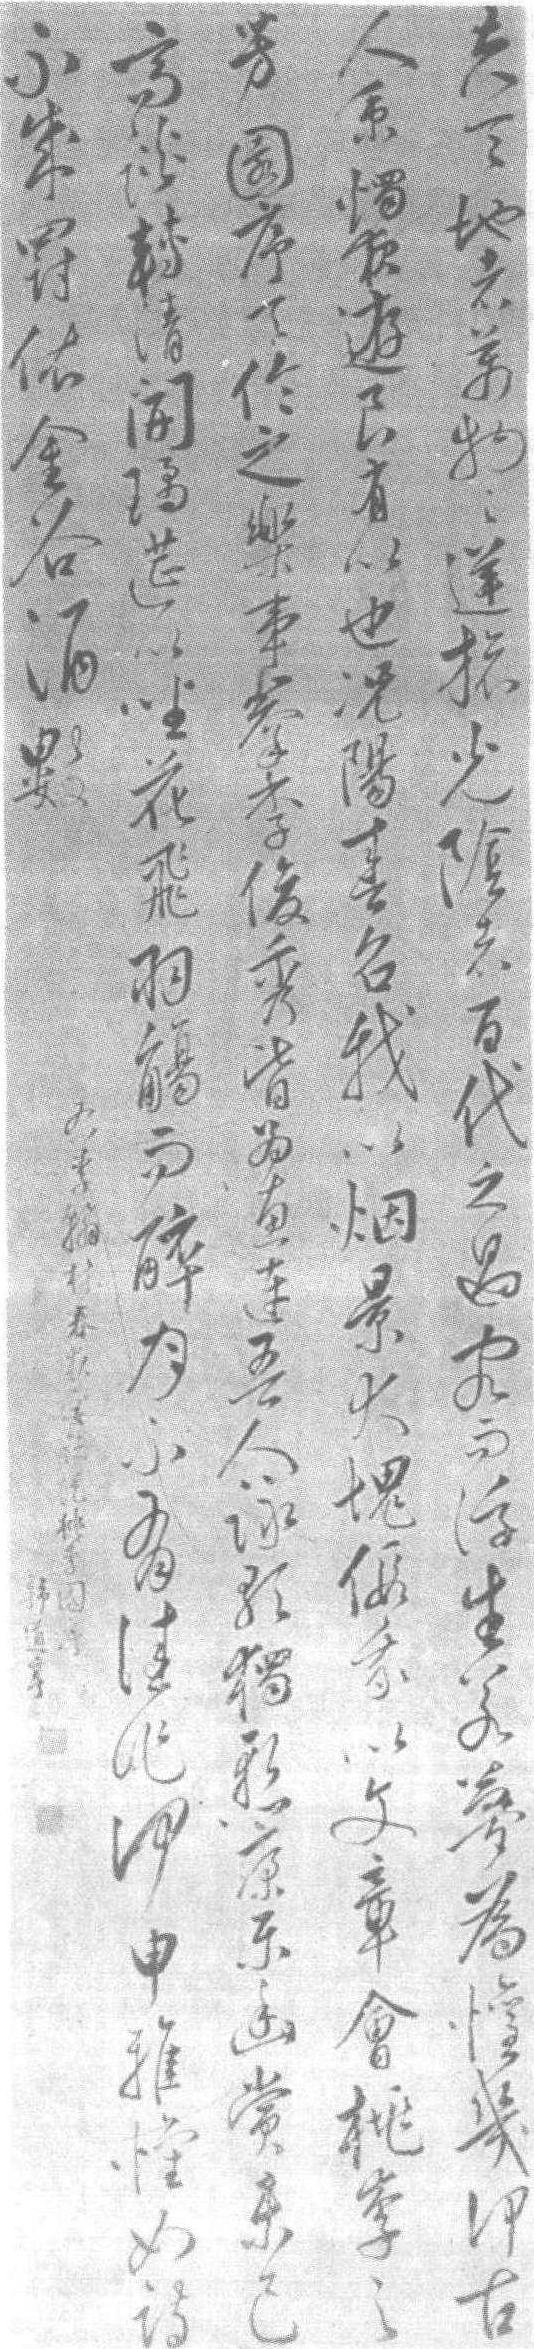 夫天地者萬物之逆旅光陰者百代之過客而浮生若夢為懽幾何古
人秉燭夜遊良有以也況陽春召我以烟景大塊假我以文章會桃李之
芳園序天倫之樂事羣季俊秀皆為惠連吾人詠歌獨慙康樂幽賞未已
高談轉清開瓊筵以坐花飛羽觴而醉月不有佳作何申雅懷如詩
不成罰依金谷酒數
右李翰林春夜宴桃李園序
韓道亨